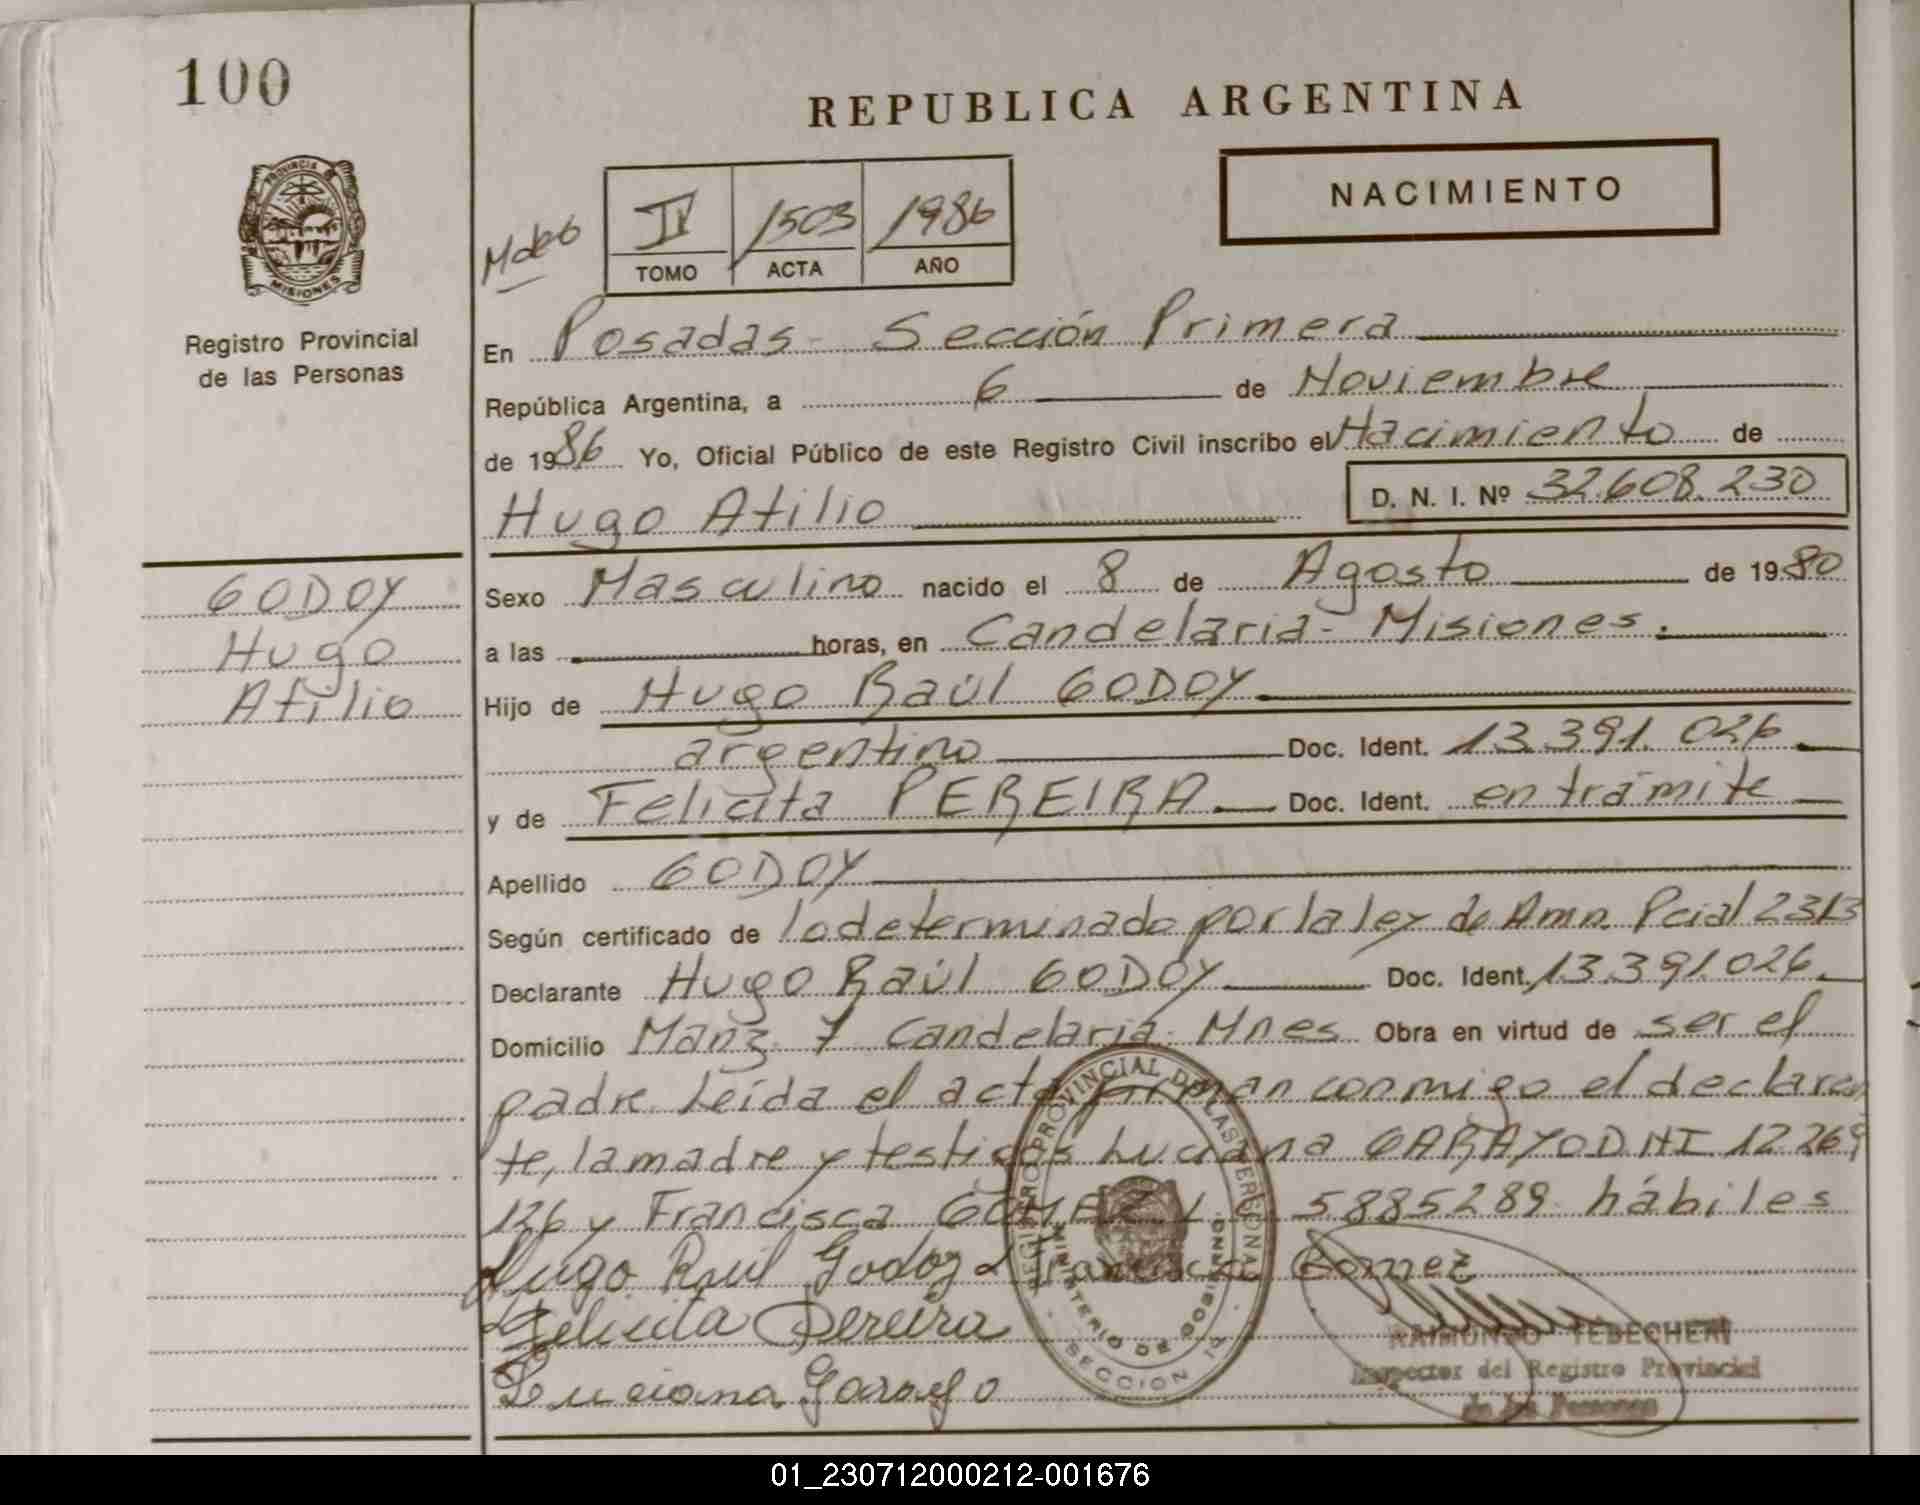 100
REPUBLICA ARGENTINA
NACIMIENTO
PROVINCIA
MISIONES
Registro Provincial
de las Personas
II 1503 1986
TOMO ACTA AÑO
En Posadas - Sección Primera
República Argentina, a 6 de Noviembre
de 1986 Yo, Oficial Público de este Registro Civil inscribo el Nacimiento de
Hugo Atilio D. N. I. Nº 32.608.230
GODOY
Hugo
Atilio
Sexo Masculino nacido el 8 de Agosto de 1980
a las horas, en Candelaria - Misiones.
Hijo de Hugo Raúl GODOY
argentino Doc. Ident. 13.391.026
y de Felicita PEREIRA Doc. Ident. en trámite
Apellido GODOY
Según certificado de lo determinado por la ley de Amn. Pcial 2313
Declarante Hugo Raúl GODOY Doc. Ident. 13.391.026
Domicilio Manz. 7 Candelaria. Mnes Obra en virtud de ser el
padre. Leída el acta firman conmigo el declaran
te, la madre y testigos Luciana GARAYO DNI 12.269
126 y Francisca GOMEZ L C 5885289 hábiles
Hugo Raúl Godoy Francisca Gomez
Felicita Pereira
Luciana Garayo
REGISTRO PROVINCIAL DE LAS PERSONAS
MINISTERIO DE GOBIERNO
SECCION 1ª
RAIMUNDO TEBECHERI
Inspector del Registro Provincial
de las Personas
01_230712000212-001676